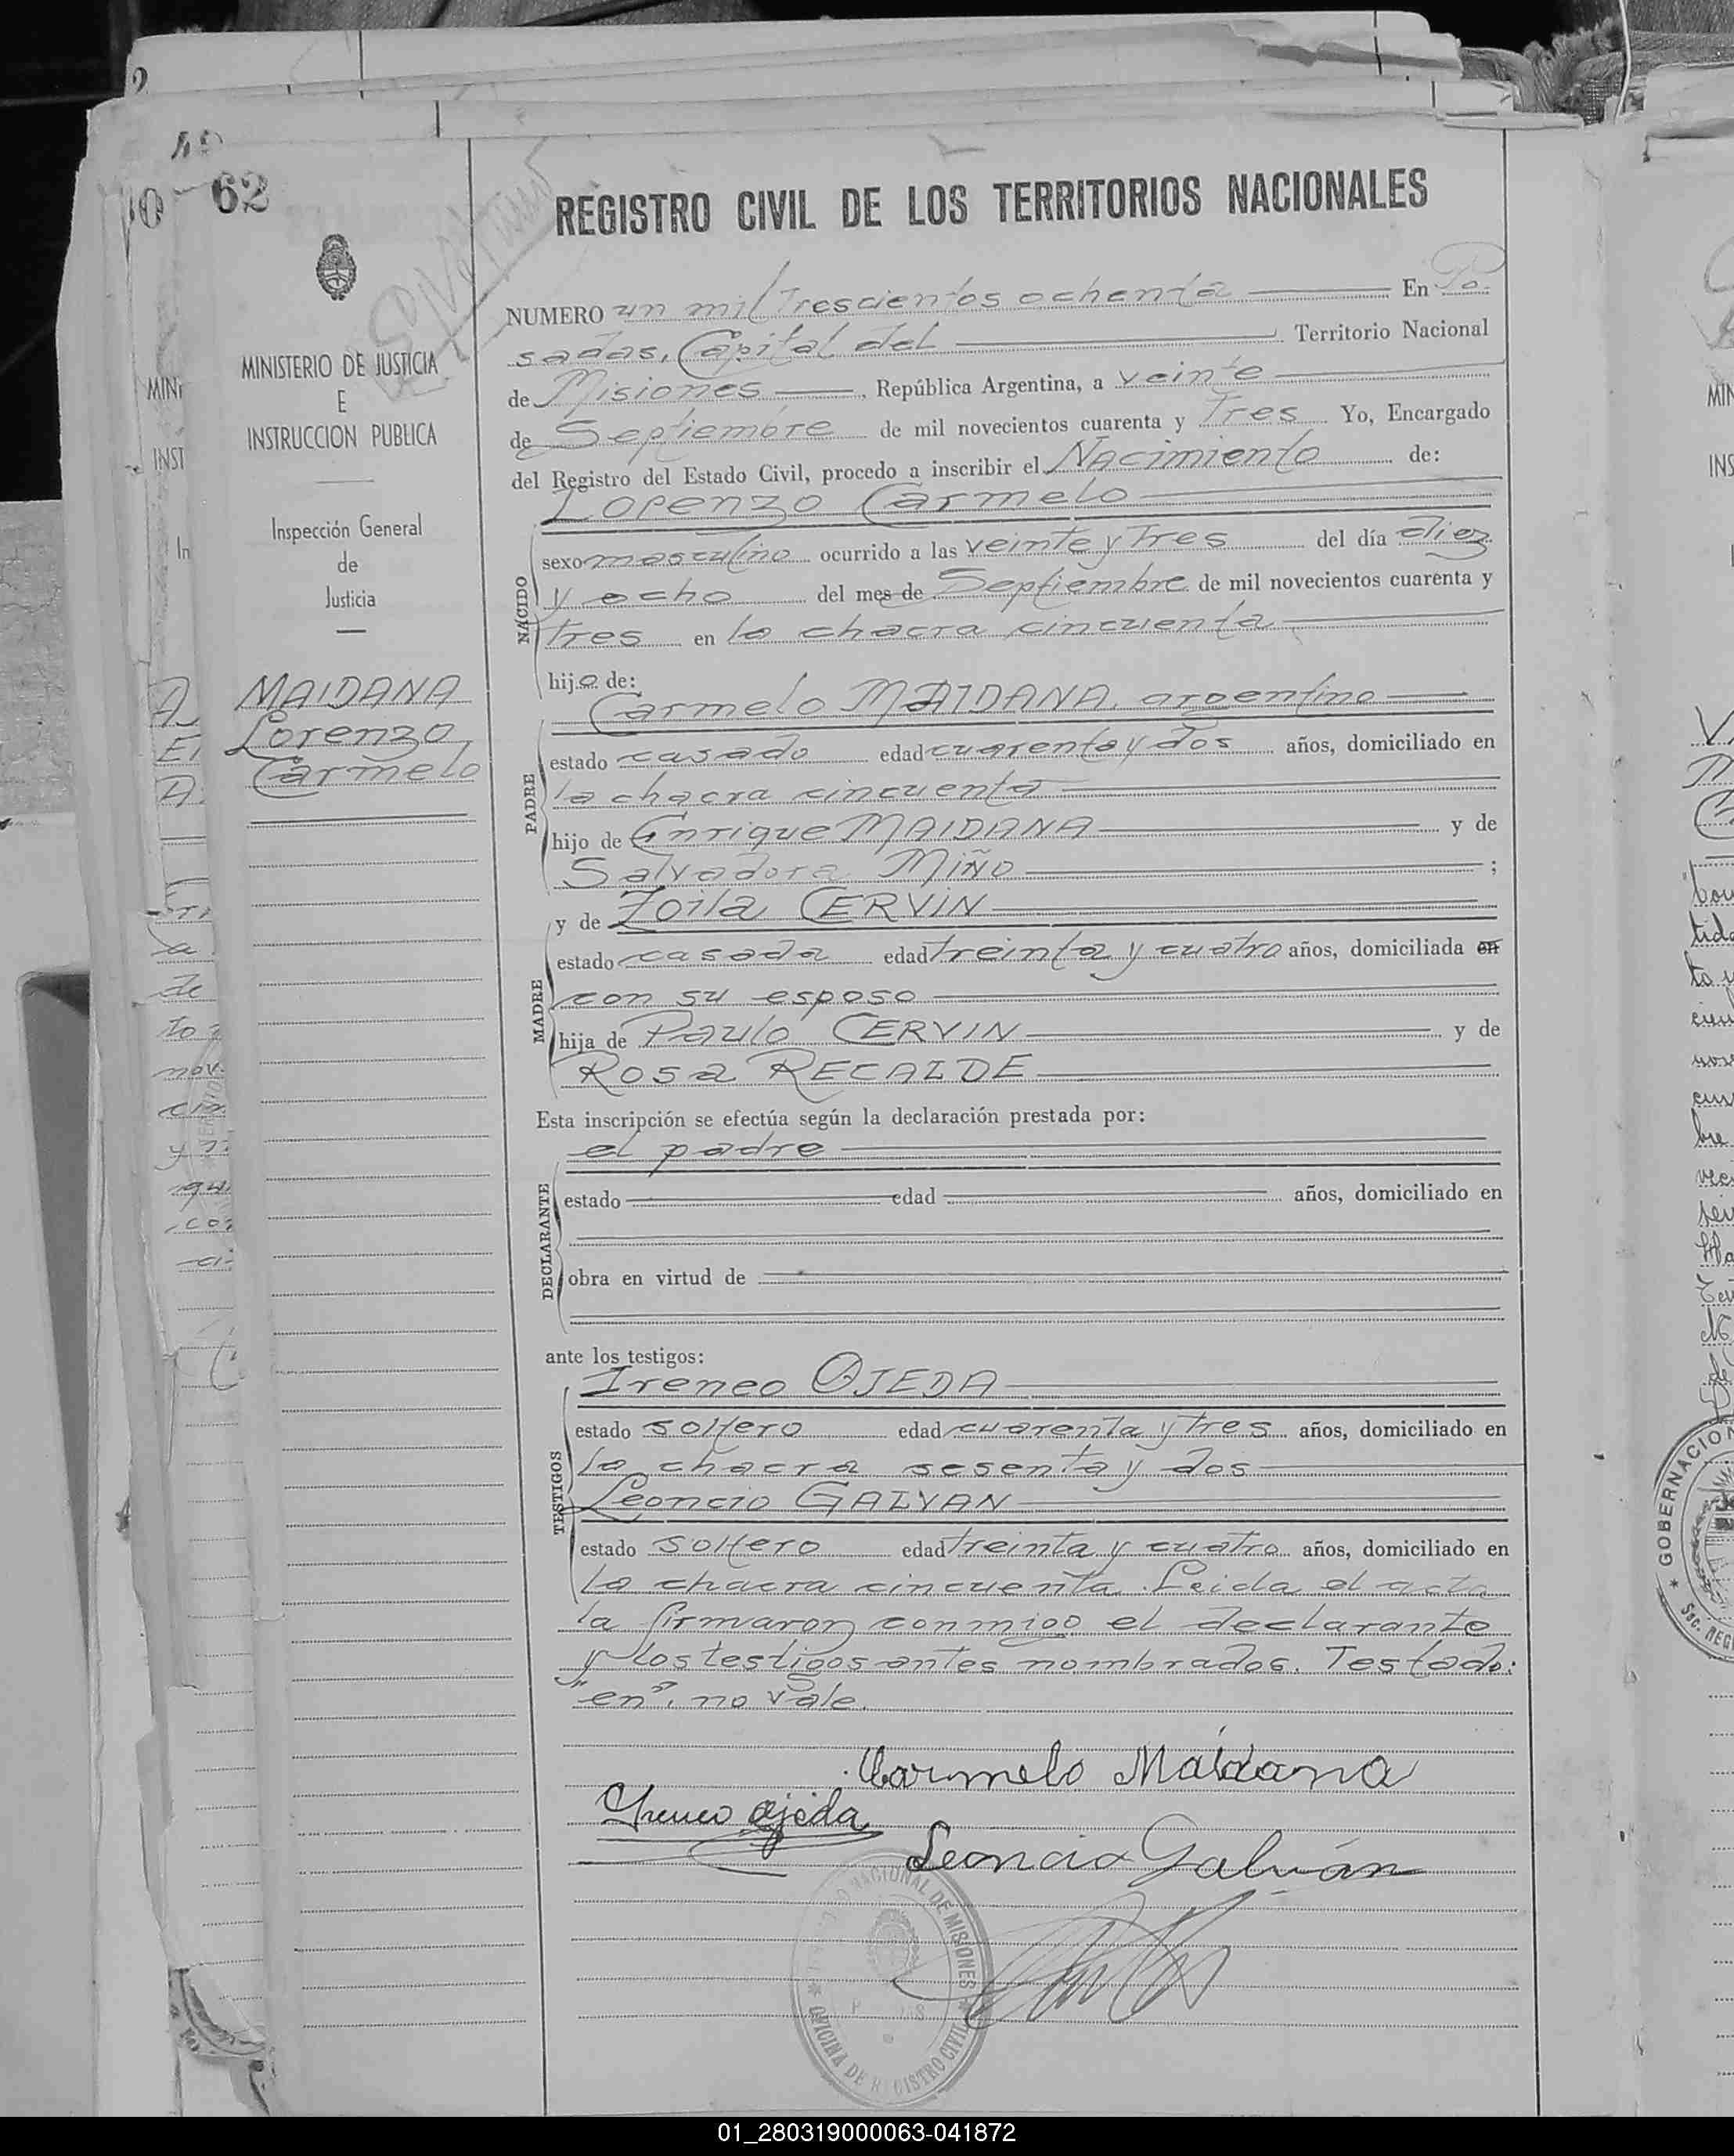 62
REGISTRO CIVIL DE LOS TERRITORIOS NACIONALES
MINISTERIO DE JUSTICIA
E
INSTRUCCION PUBLICA
Inspección General
de
Justicia
MAIDANA
Lorenzo
Carmelo
NUMERO un mil trescientos ochenta En Po
sadas, Capital del Territorio Nacional
de Misiones , República Argentina, a veinte
de Septiembre de mil novecientos cuarenta y Tres Yo, Encargado
del Registro del Estado Civil, procedo a inscribir el Nacimiento de:
Lorenzo Carmelo
NACIDO
sexo masculino ocurrido a las veinte y Tres del día diez
y ocho del mes de Septiembre de mil novecientos cuarenta y
tres en la chacra cincuenta
hijo de:
Carmelo MAIDANA, argentino
PADRE
estado casado edad cuarenta y dos años, domiciliado en
la chacra cincuenta
hijo de Enrique MAIDANA y de
Salvadora MIÑO ;
y de Zoila CERVIN
MADRE
estado casada edad treinta y cuatro años, domiciliada en
con su esposo
hija de Paulo CERVIN y de
Rosa RECALDE
Esta inscripción se efectúa según la declaración prestada por:
el padre
DECLARANTE
estado edad años, domiciliado en
obra en virtud de
ante los testigos:
Ireneo OJEDA
TESTIGOS
estado soltero edad cuarenta y tres años, domiciliado en
la chacra sesenta y dos
Leoncio GALVAN
estado soltero edad treinta y cuatro años, domiciliado en
la chacra cincuenta. Leida el acta
la firmaron conmigo el declarante
y los testigos antes nombrados. Testado:
"en", no vale.
Carmelo Maidana
Yreneo Ojeda
Leoncio Galván
NACIONAL DE MISIONES
OFICINA DE REGISTRO CIVIL
GOBERNACION
01_280319000063-041872